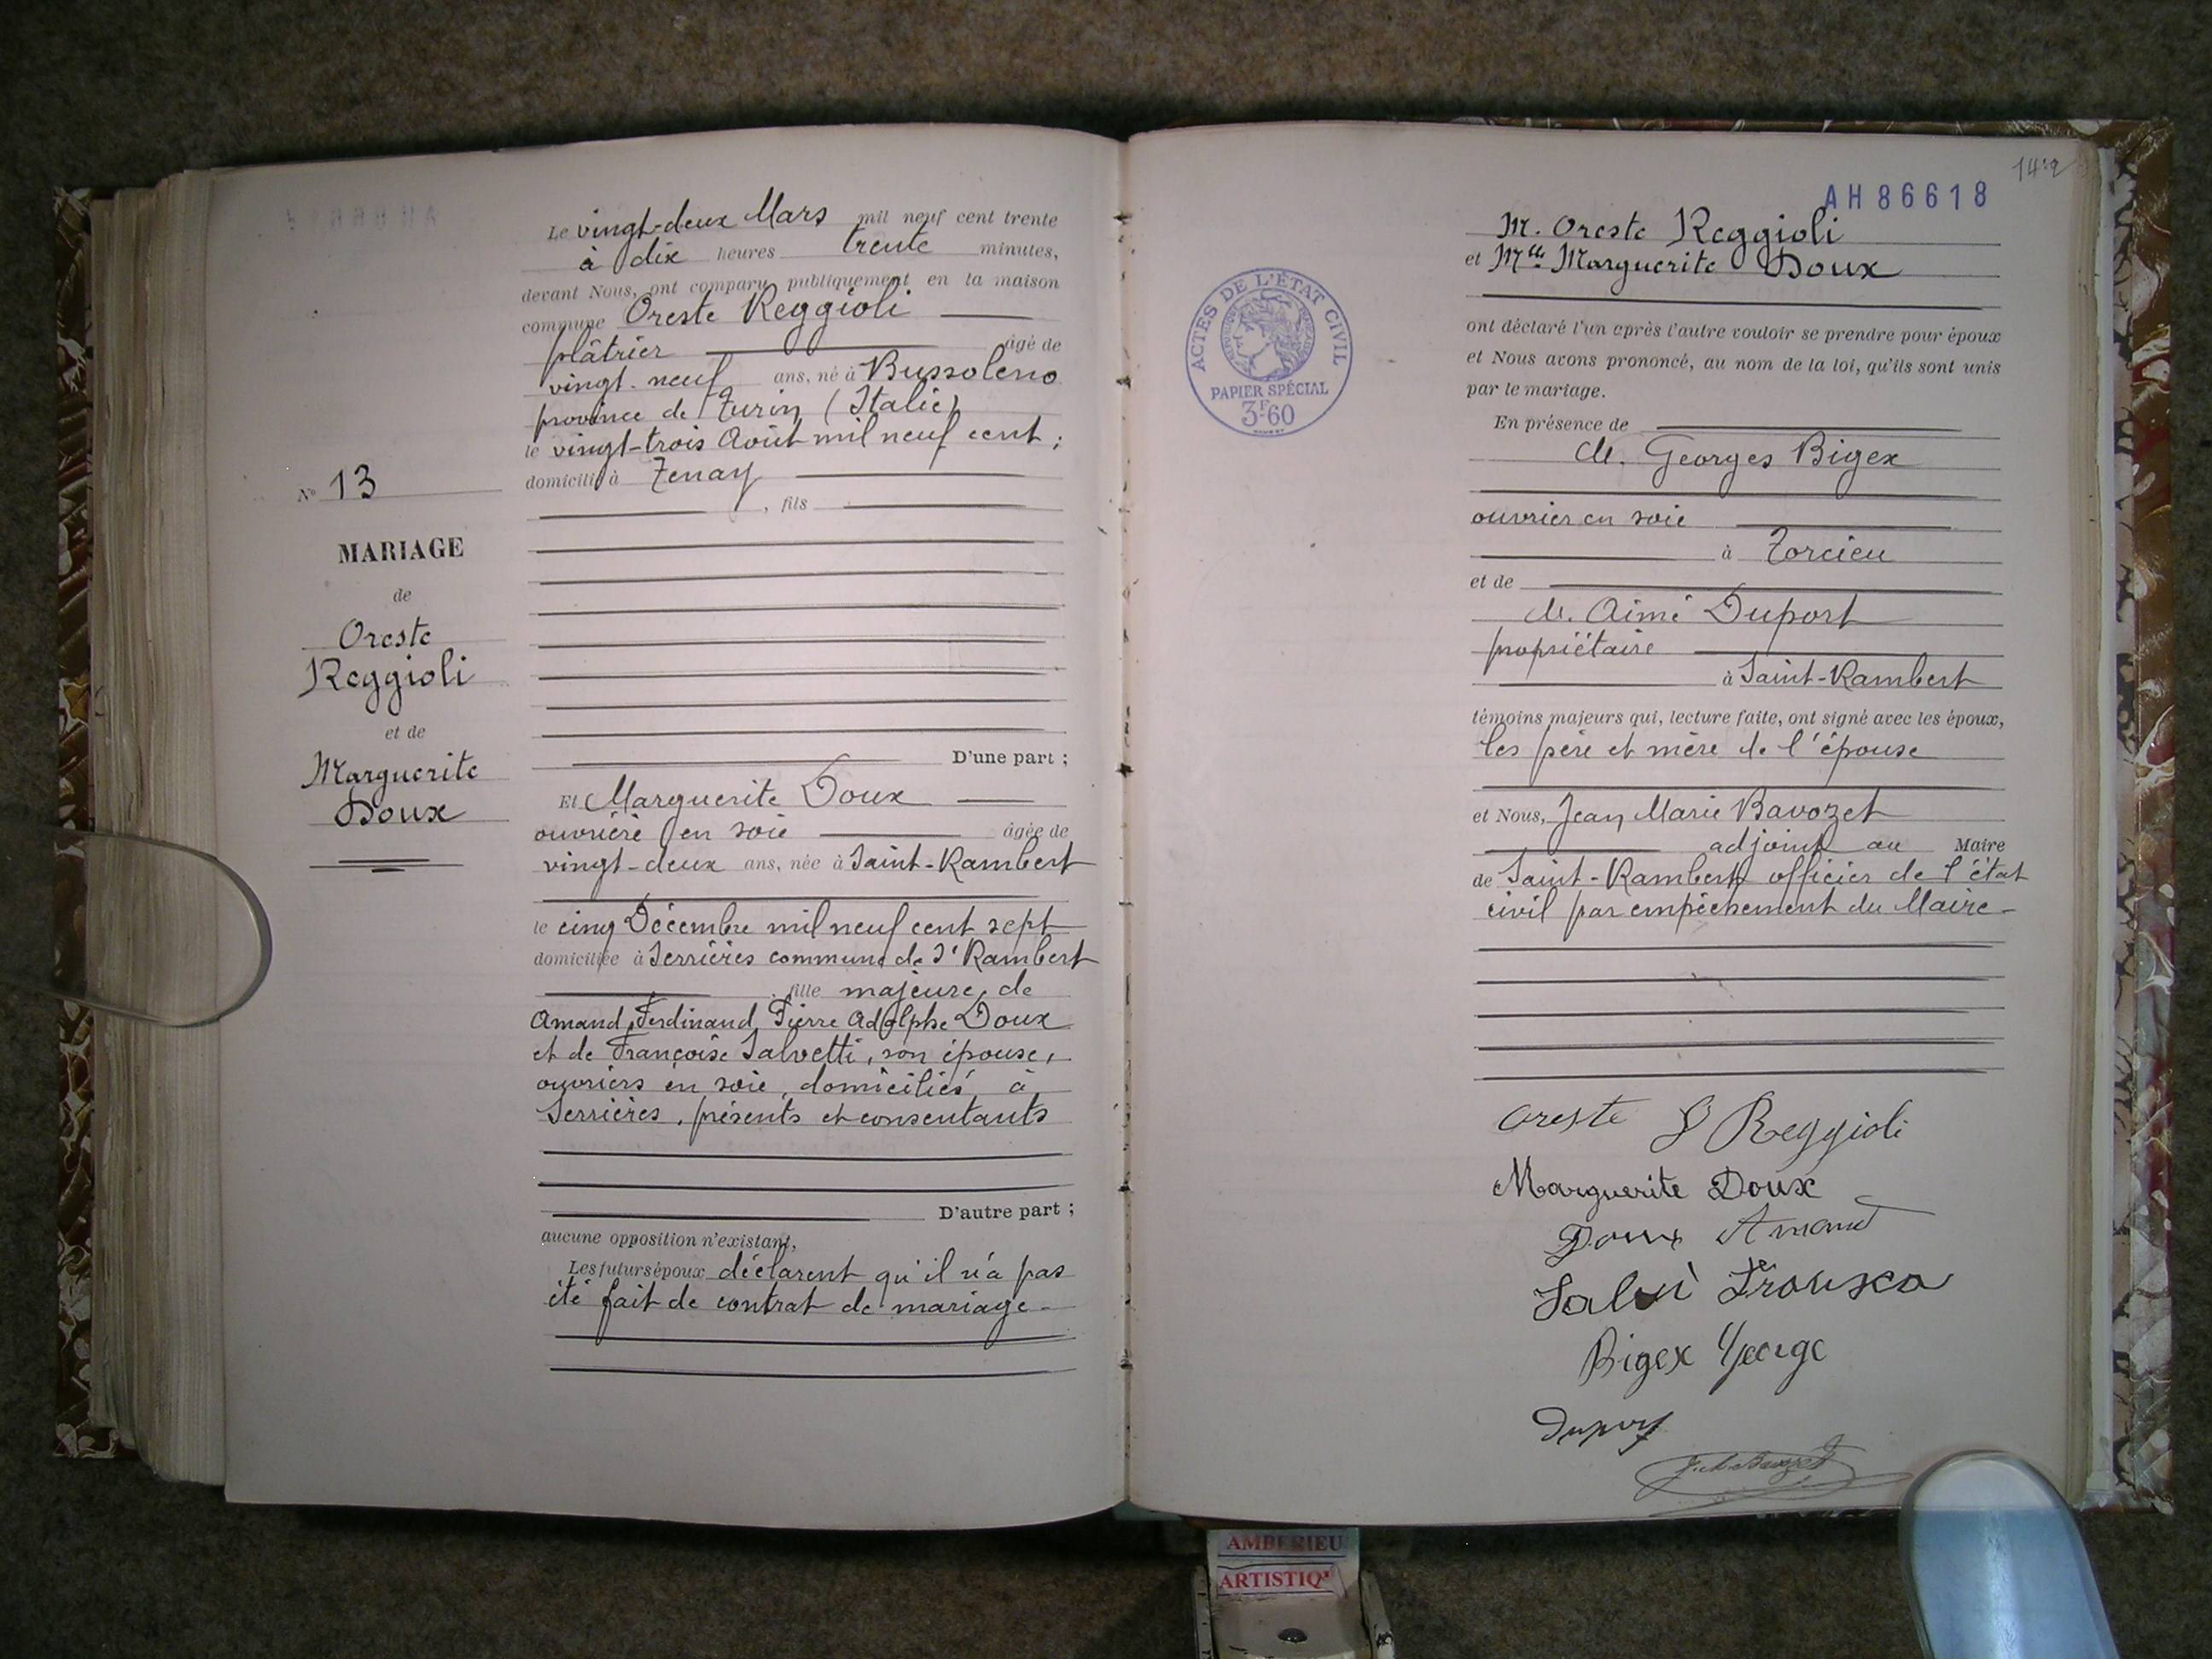 Le vingt-deux Mars mil neuf cent trente
à dix heures trente minutes,
devant Nous, ont comparu publiquement en la maison
commune Oreste Reggioli
plâtrier âgé de
vingt-neuf ans, né à Bussoleno
province de Turin (Italie)
le vingt-trois Août mil neuf cent ;
domicilié à Tenay
, fils
N° 13
MARIAGE
de
Oreste
Reggioli
et de
Marguerite
Doux
D'une part ;
Et Marguerite Doux
ouvrière en soie âgée de
vingt-deux ans, née à Saint-Rambert
le cinq Décembre mil neuf cent sept
domiciliée à Serrières commune de St Rambert
fille majeure, de
Amand, Ferdinand, Pierre Adolphe Doux
et de Françoise Salvetti, son épouse,
ouvriers en soie, domiciliés à
Serrières, présents et consentants
D'autre part ;
aucune opposition n'existant,
Les futurs époux déclarent qu'il n'a pas
été fait de contrat de mariage
AH86618
M. Oreste Reggioli
et Mlle Marguerite Doux
ACTES DE L'ÉTAT CIVIL
PAPIER SPÉCIAL
3F60
ont déclaré l'un après l'autre vouloir se prendre pour époux
et Nous avons prononcé, au nom de la loi, qu'ils sont unis
par le mariage.
En présence de
M. Georges Bigex
ouvrier en soie
à Torcieu
et de
M. Aimé Duport
propriétaire
à Saint-Rambert
témoins majeurs qui, lecture faite, ont signé avec les époux,
les père et mère de l'épouse
et Nous, Jean Marie Bavozet
adjoint au Maire
de Saint-Rambert officier de l'état
civil par empêchement du Maire
Oreste Reggioli
Marguerite Doux
Doux Amand
Bigex George
Duport
AMBERIEU
ARTISTIQ